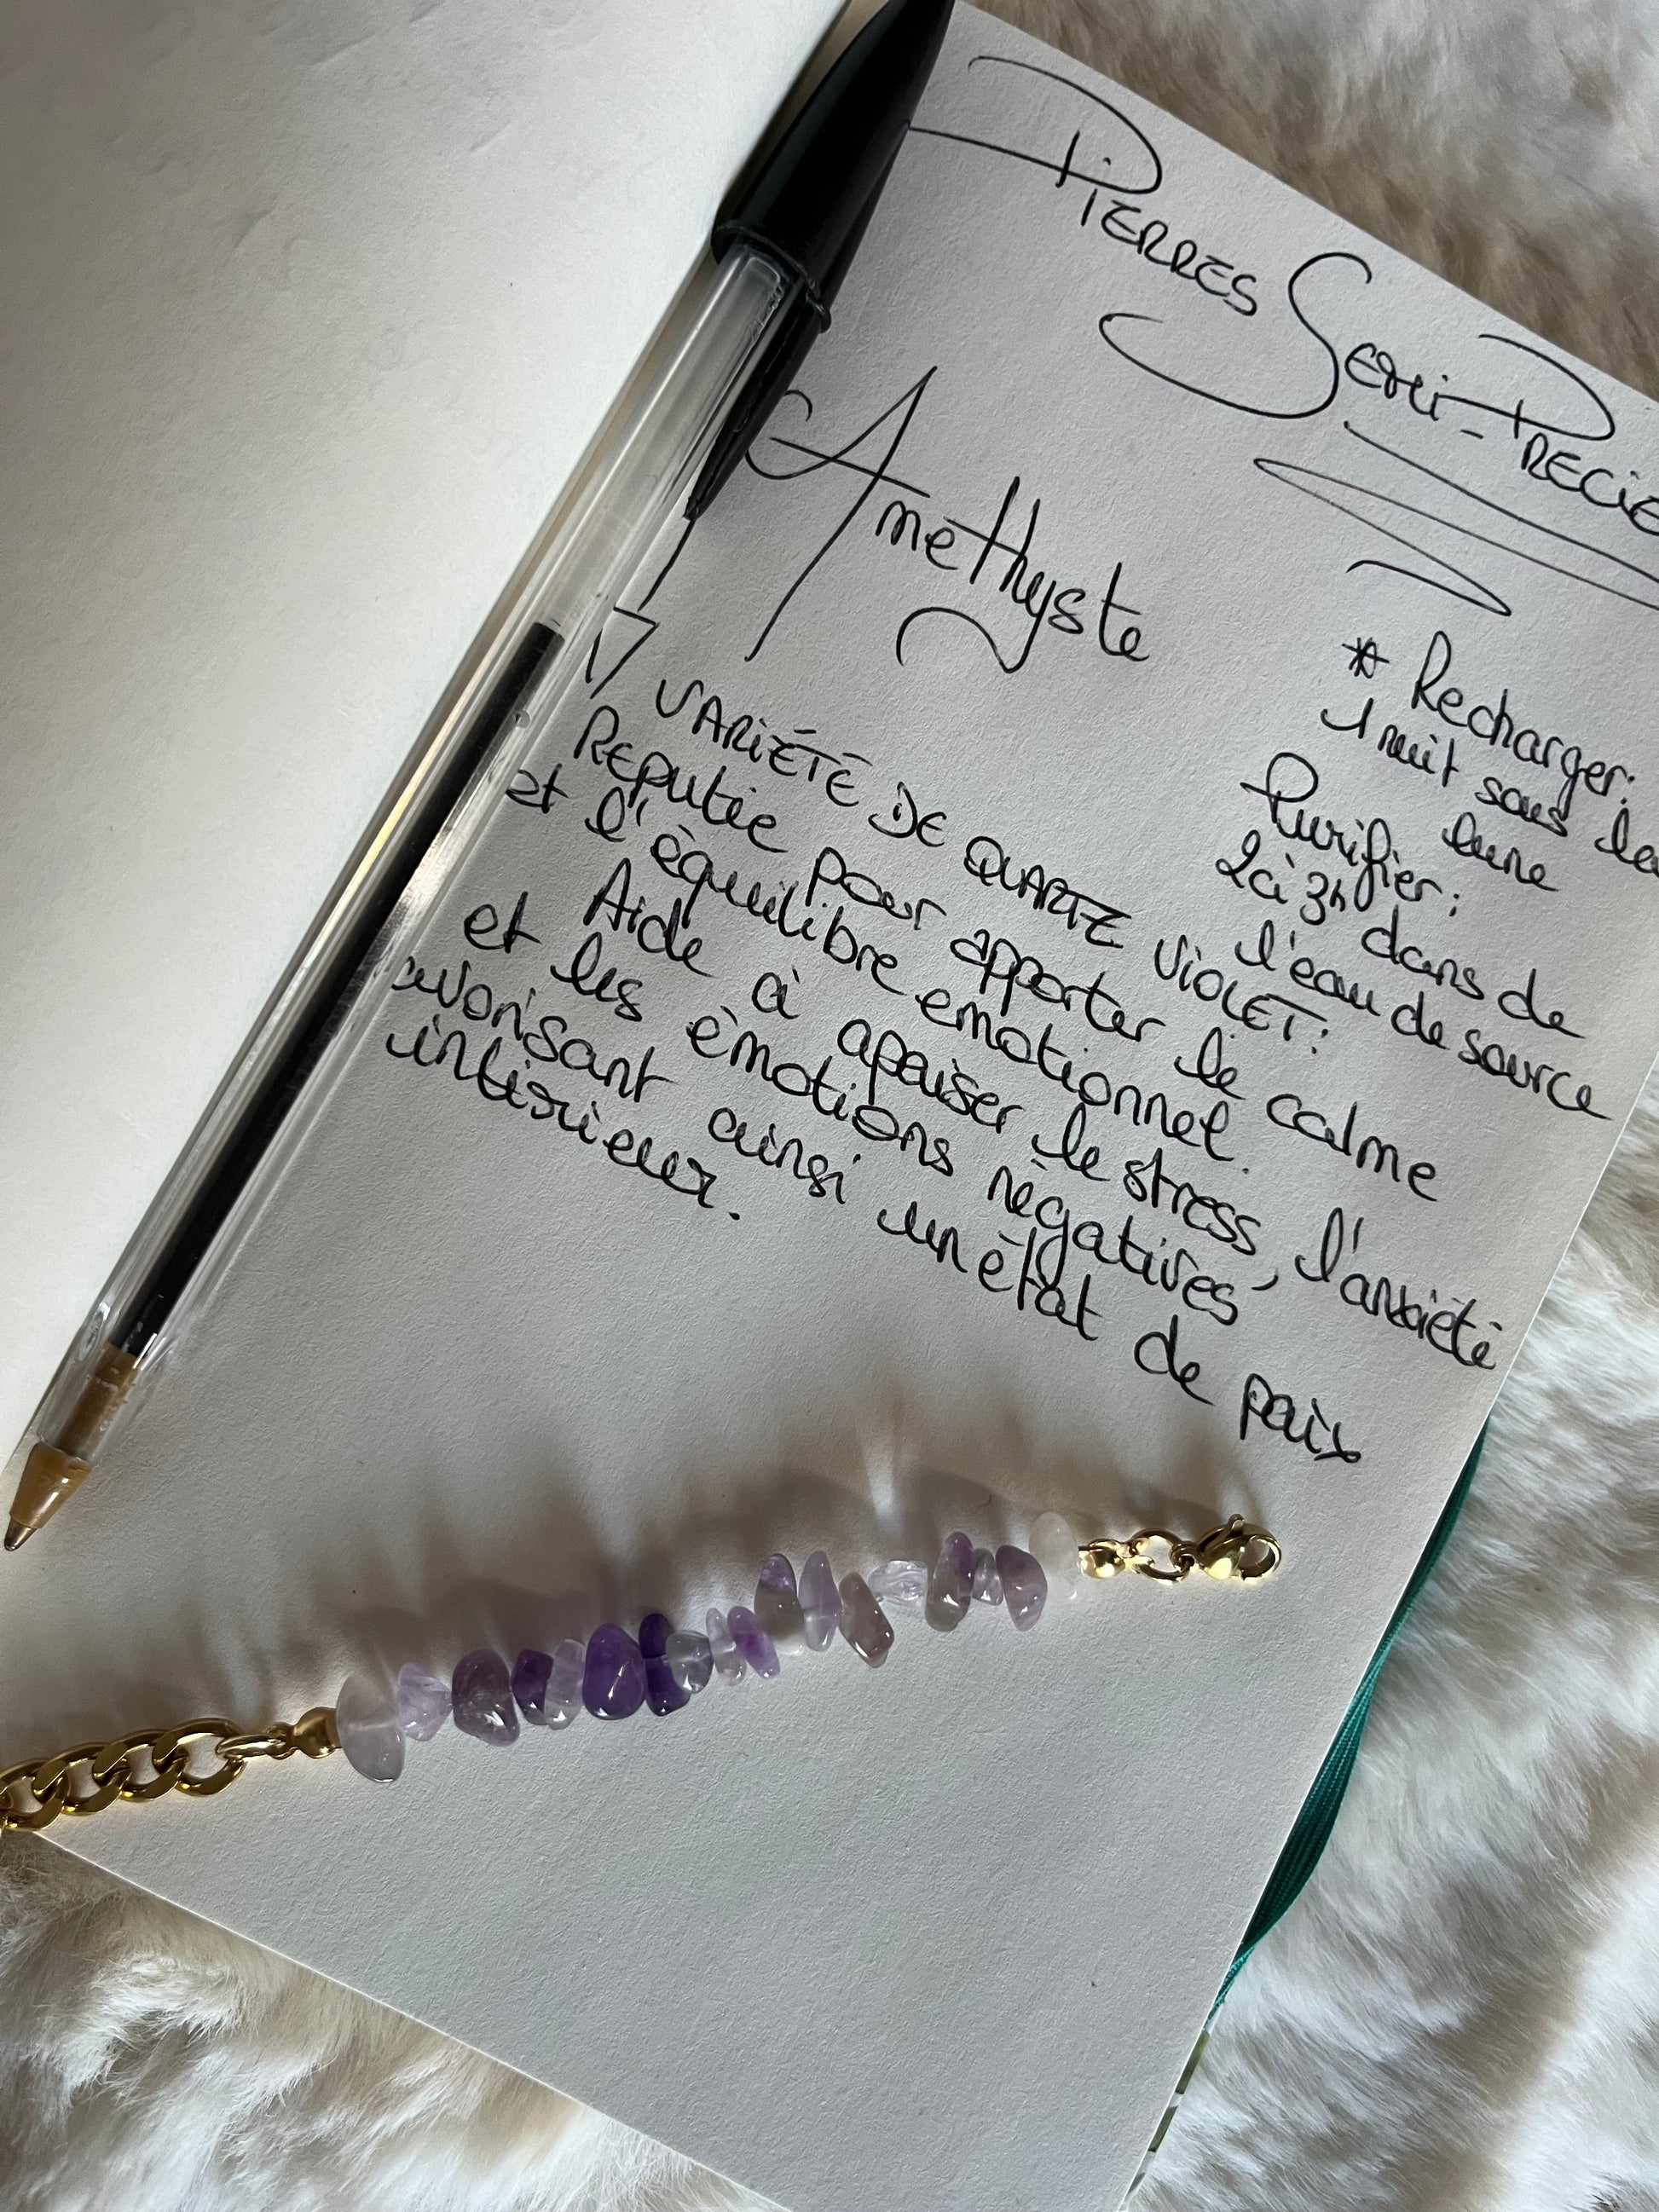 Pierres Semi-Precie
Amethyste
* Recharger:
1 nuit sous la
lune
Purifier:
2 à 3h dans de
l'eau de source
VARIÉTÉ DE QUARTZ VIOLET:
Reputée pour apporter le calme
et l'équilibre emotionnel.
Aide à apaiser le stress, l'anxiété
et les émotions négatives,
avorisant ainsi un état de paix
intérieur.